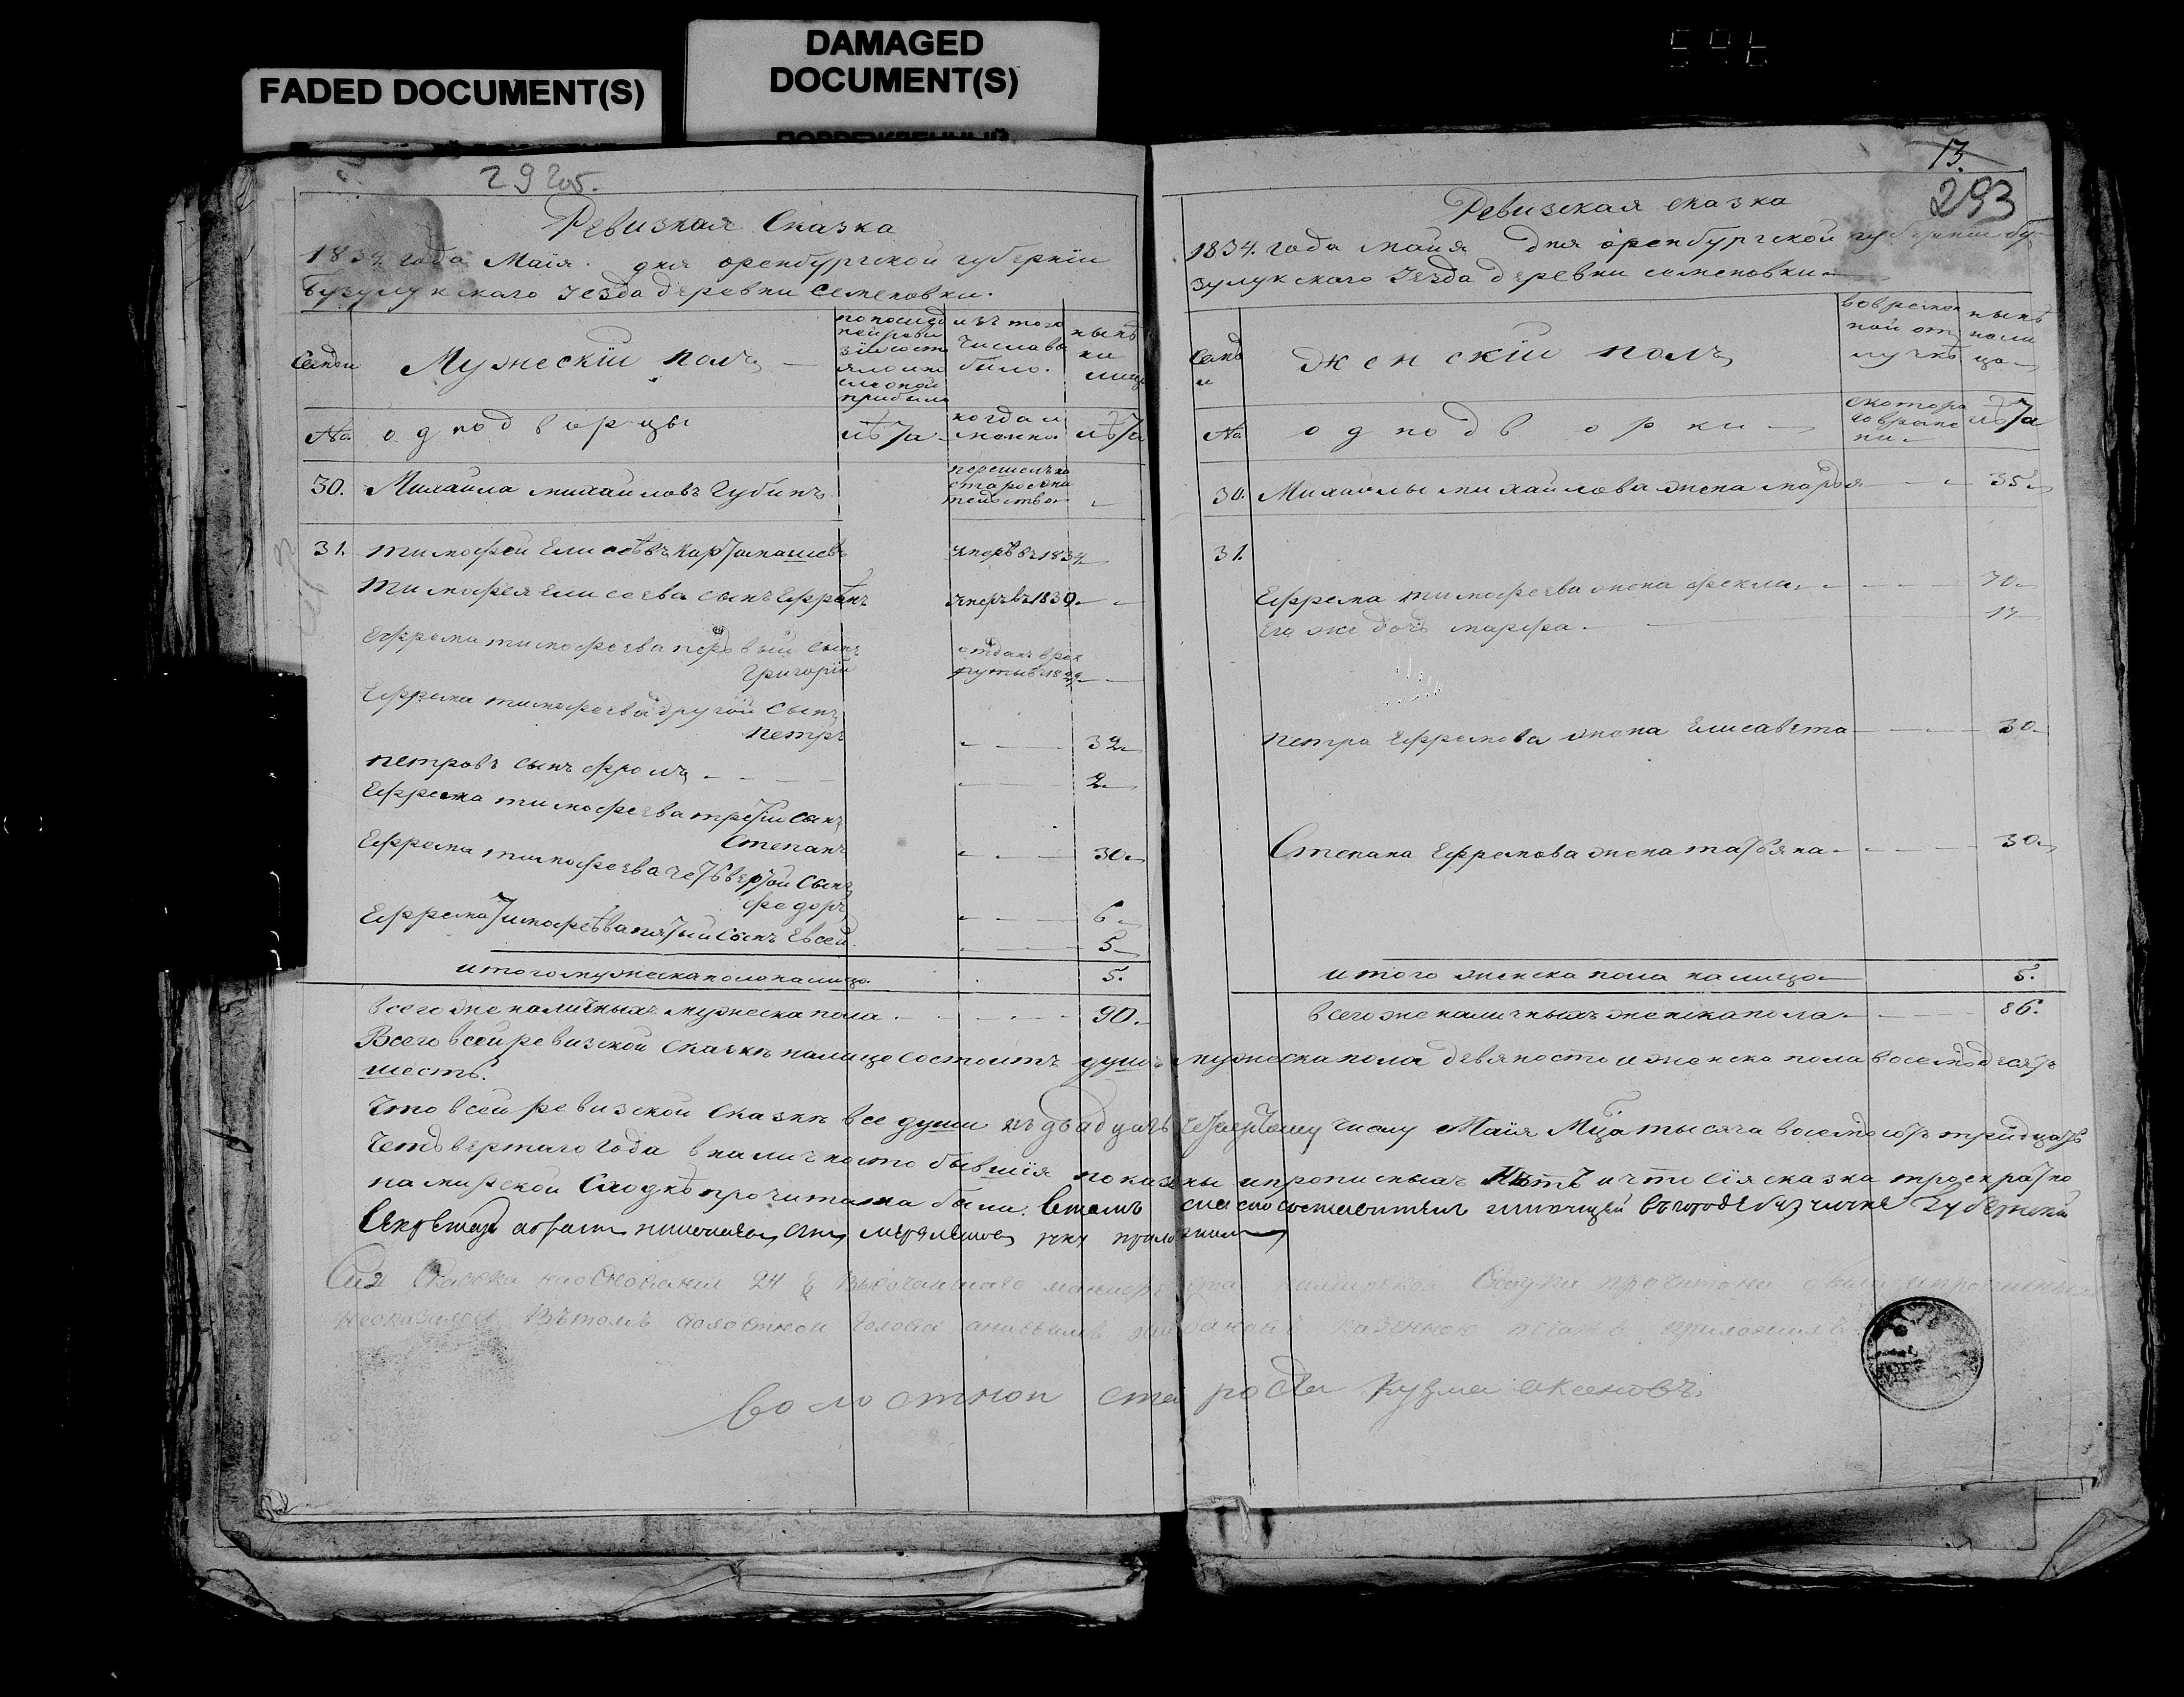 FADED DOCUMENT(S)
DAMAGED
DOCUMENT(S)
292об.
Ревизкая Сказка
1834 года Маія дня оренбургской губерніи
Бузулукскаго уезда деревни Семеновки.
Семьи
Мужескій полъ
по последней ревизіи состояло и после оной прибыло
изъ того числа выбыло.
ныне на лицо
№
однодворцы
лѣта
когда и
лѣта
30. Михаила михаиловъ Губинъ
31. тимофеи Елисѣвъ Карташевъ умерѣ въ 1834
тимофея елисеева сынъ Ефрѣмъ умеръ въ 1830
Ефрема тимофеева первый сынъ
Григорій отданъ в рек
руты въ 18
Ефрема тимофеева другои сынъ
петръ 32
петровъ сынъ фролъ 2
Ефрема тимофеева третіи сынъ
Степанъ 30
Ефрема тимофеева четвертои сынъ
федоръ 6
Ефрема тимофѣва пятыи сынъ Евсей 5
итого мужеска пола налицо. 5.
всего же наличныхъ мужеска пола 90.
13.
293
Ревизская сказка
1834. года майя дня оренбургской губерніи бу
зулукскаго уезда деревни семеновки
Семьи
женскій полъ
во временной отлучкѣ
ныне на лицо
№
однодворки
с котора
го време
ни
лѣта
30. Михаилы михаилова жена марья 35
31.
Ефрема тимофеева жена фекла 70
Его же дочь марфа 17
петра Ефремова жена Елисавета 30
Степана Ефремова жена татьяна 30
итого женска пола налицо 5.
всего же наличныхъ женска пола 86.
Всего в сей ревизской сказкѣ налицо состоитъ душъ мужеска пола девяносто и женска пола восемдесятъ
шесть.
Что в сеи ревизской Сказкѣ все души къ двадцать четвертому числу Маія Мца тысяча восемьсотъ тридцать
четвертаго года в наличности бывшія показаны и прописныхъ Нѣтъ и что сія сказка троекратно
на мирской Сходкѣ прочитана была. Въ томъ
Сия Сказка на основании 24 § Высочаишаго манифеста Сходки прочитана была
неоказалось Въ томъ волостной Голова казенною печать приложилъ
волостнои староста Кузма аксеновъ.